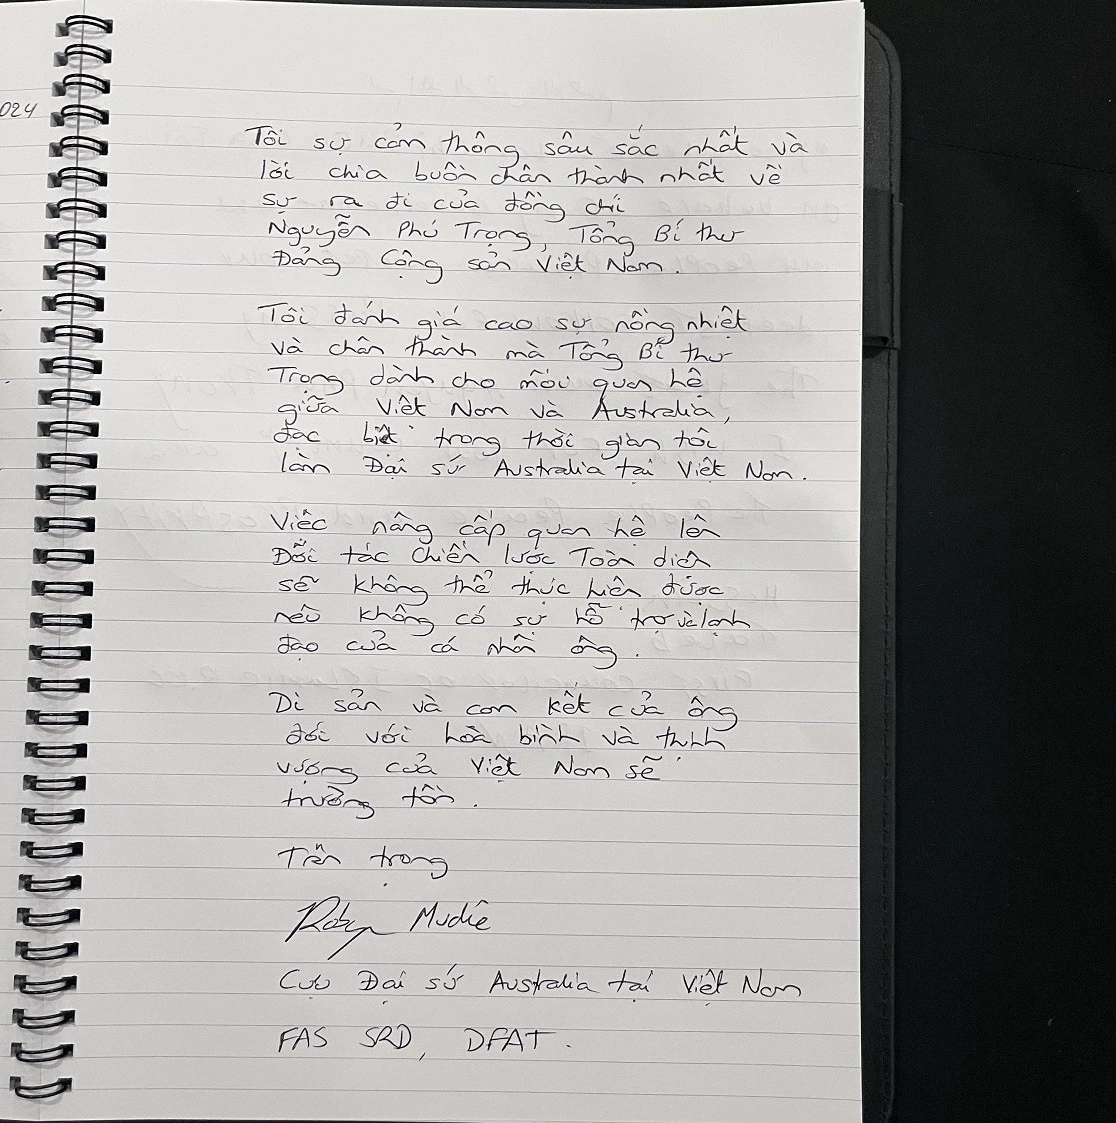 024
Tôi sự cảm thông sâu sắc nhất và
lời chia buồn chân thành nhất về
sự ra đi của đồng chí
Nguyễn Phú Trọng, Tổng Bí thư
Đảng Cộng sản Việt Nam.
Tôi đánh giá cao sự nồng nhiệt
và chân thành mà Tổng Bí thư
Trọng dành cho mối quan hệ
giữa Việt Nam và Australia,
đặc biệt trong thời gian tôi
làm Đại sứ Australia tại Việt Nam.
Việc nâng cấp quan hệ lên
Đối tác Chiến lược Toàn diện
sẽ không thể thực hiện được
nếu không có sự hỗ trợ và lãnh
đạo của cá nhân ông.
Di sản và cam kết của ông
đối với hoà bình và thịnh
vượng của Việt Nam sẽ
trường tồn.
Trân trọng
Robyn Mudie
Cựu Đại sứ Australia tại Việt Nam
FAS SRD, DFAT.